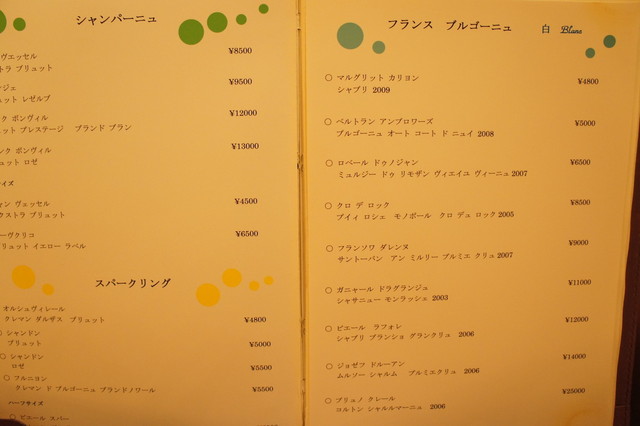 シャンパーニュ
ヴエッセル ¥8500
トラ ブリュット
ンジェ ¥9500
ュット レゼルブ
ンク ボンヴィル ¥12000
ット プレステージ ブランド ブラン
ンク ボンヴィル ¥13000
ュット ロゼ
イズ
ィン ヴェッセル ¥4500
クストラ ブリュット
ーヴクリコ ¥6500
リュット イエロー ラベル
スパークリング
オルシュヴィレール
クレマン ダルザス ブリュット ¥4800
○ シャンドン
ブリュット ¥5000
○ シャンドン
ロゼ ¥5500
○ フルニヨン
クレマン ド ブルゴーニュ ブランドノワール ¥5500
ハーフサイズ
○ ピエール スパー
フランス ブルゴーニュ 白 Blanc
○ マルグリット カリヨン ¥4800
シャブリ 2009
○ ベルトラン アンブロワーズ ¥5000
ブルゴーニュ オート コート ド ニュイ 2008
○ ロベール ドゥノジャン ¥6500
ミュルジー ドゥ リモザン ヴィエイユ ヴィーニュ 2007
○ クロ デ ロック ¥8500
プイィ ロシェ モノポール クロ デュ ロック 2005
○ フランソワ ダレンヌ ¥9000
サントーバン アン ミルリー プルミエ クリュ 2007
○ ガニャール ドラグランジュ ¥11000
シャサニュー モンラッシェ 2003
○ ピエール ラフォレ ¥12000
シャブリ ブランショ グランクリュ 2006
○ ジョゼフ ドルーアン ¥14000
ムルソー シャルム プルミエクリュ 2006
○ ブリュノ クレール ¥25000
コルトン シャルルマーニュ 2006